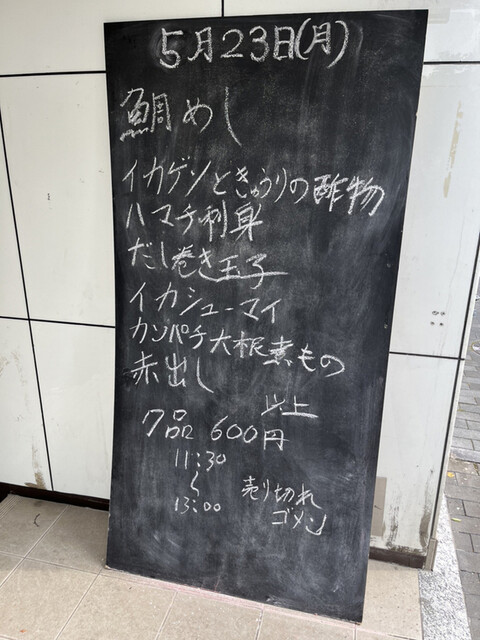 5月23日(月)
鯛めし
イカゲソときゅうりの酢物
ハマチ刺身
だし巻き玉子
イカシューマイ
カンパチ大根煮もの
赤出し
以上
7品 600円
11:30
〜
13:00
売り切れ
ゴメン